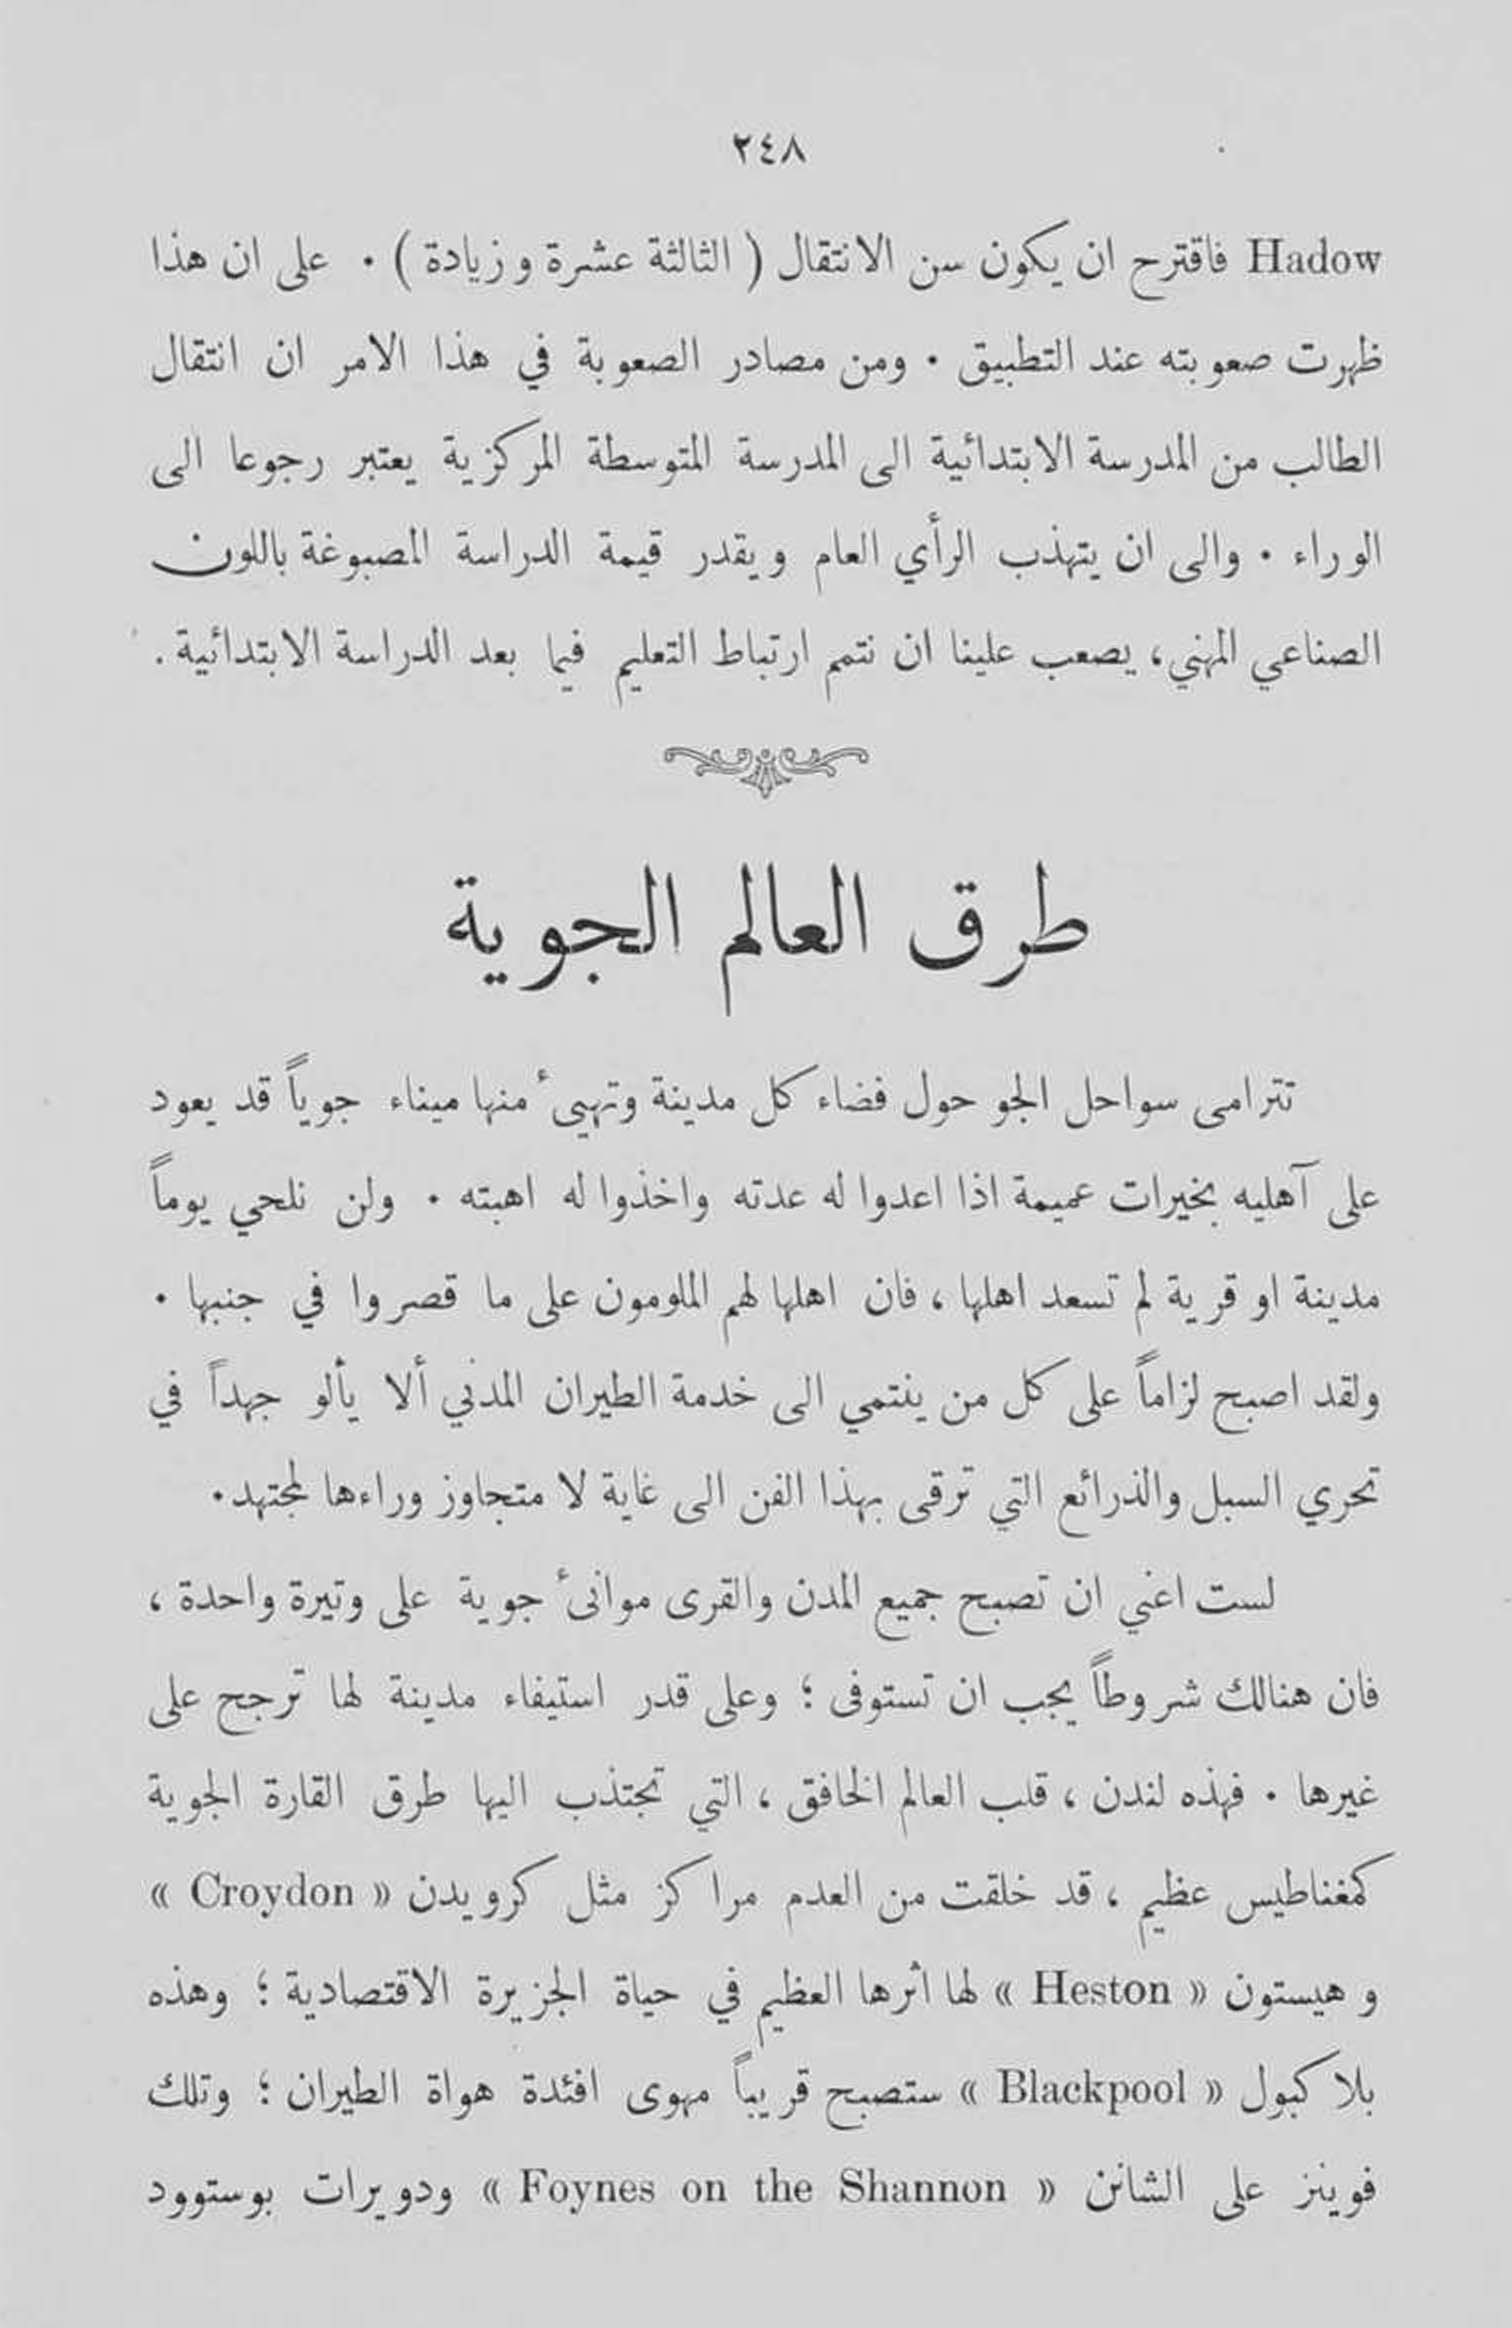 ٢٤٨
Hadow فاقترح ان يكون سن الانتقال ( الثالثة عشرة وزيادة ) . على ان هذا
ظهرت صعوبته عند التطبيق . ومن مصادر الصعوبة في هذا الامر ان انتقال
الطالب من المدرسة الابتدائية الى المدرسة المتوسطة المركزية يعتبر رجوعا الى
الوراء . والى ان يتهذب الرأي العام ويقدر قيمة الدراسة المصبوغة باللون
الصناعي المهني، يصعب علينا ان نتمم ارتباط التعليم فيما بعد الدراسة الابتدائية .
طرق العالم الجوية
تترامى سواحل الجو حول فضاء كل مدينة وتهيىء منها ميناء جوياً قد يعود
على آهليه بخيرات عميمة اذا اعدوا له عدته واخذوا له اهبته . ولن نلحي يوماً
مدينة او قرية لم تسعد اهلها ، فان اهلها لهم الملومون على ما قصروا في جنبها .
ولقد اصبح لزاماً على كل من ينتمي الى خدمة الطيران المدني ألا يألو جهداً في
تحري السبل والذرائع التي ترقى بهذا الفن الى غاية لا متجاوز وراءها لمجتهد.
لست اغني ان تصبح جميع المدن والقرى موانىء جوية على وتيرة واحدة ،
فان هنالك شروطاً يجب ان تستوفى ؛ وعلى قدر استيفاء مدينة لها ترجح على
غيرها . فهذه لندن ، قلب العالم الخافق ، التي تجتذب اليها طرق القارة الجوية
كمغناطيس عظيم ، قد خلقت من العدم مراكز مثل كرويدن « Croydon »
و هيستون « Heston » لها اثرها العظيم في حياة الجزيرة الاقتصادية ؛ وهذه
بلاكبول « Blackpool » ستصبح قريباً مهوى افئدة هواة الطيران ؛ وتلك
فوينز على الشانن « Foynes on the Shannon » ودويرات بوستوود